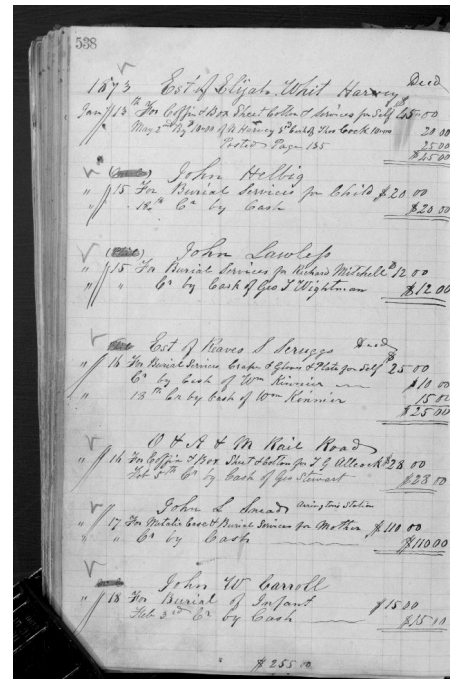 538
1873 Est of Elijah Whit Harvey Decd
Jany 13th For Coffin & Box Sheet Cotton & Services for Self $45.00
May 2nd By 10.00 of R Harvey 10.00 20 00
Posted Page 135 25 00
$45 00
John Helbig
" " 15 For Burial Services for Child $20 00
" " 18th Cr by Cash $20 00
John Lawless
" " 15 For Burial Services for Richard Mitchell $12 00
" " " Cr by Cash of Geo T Wightman $12.00
Est of Reaves S Scruggs Decd
" " 16 For Burial Services Crape & Gloves & Plate for Self $25 00
Cr by Cash of Wm Kinnier $10 00
" 18th Cr by Cash of Wm Kinnier 15 00
$25 00
O & A & M Rail Road
" " 16 For Coffin & Box Sheet & Cotton for T G Allcock $28 00
Feb 5th Cr by Cash of Geo Stewart $28 00
John L Snead Arringtons Station
" " 17 For Metalic Case & Burial Services for Mother $110 00
" " " Cr by Cash $110 00
John W Carroll
" " 18 For Burial of Infant $15 00
Feb 3rd Cr by Cash $15 00
$255 00